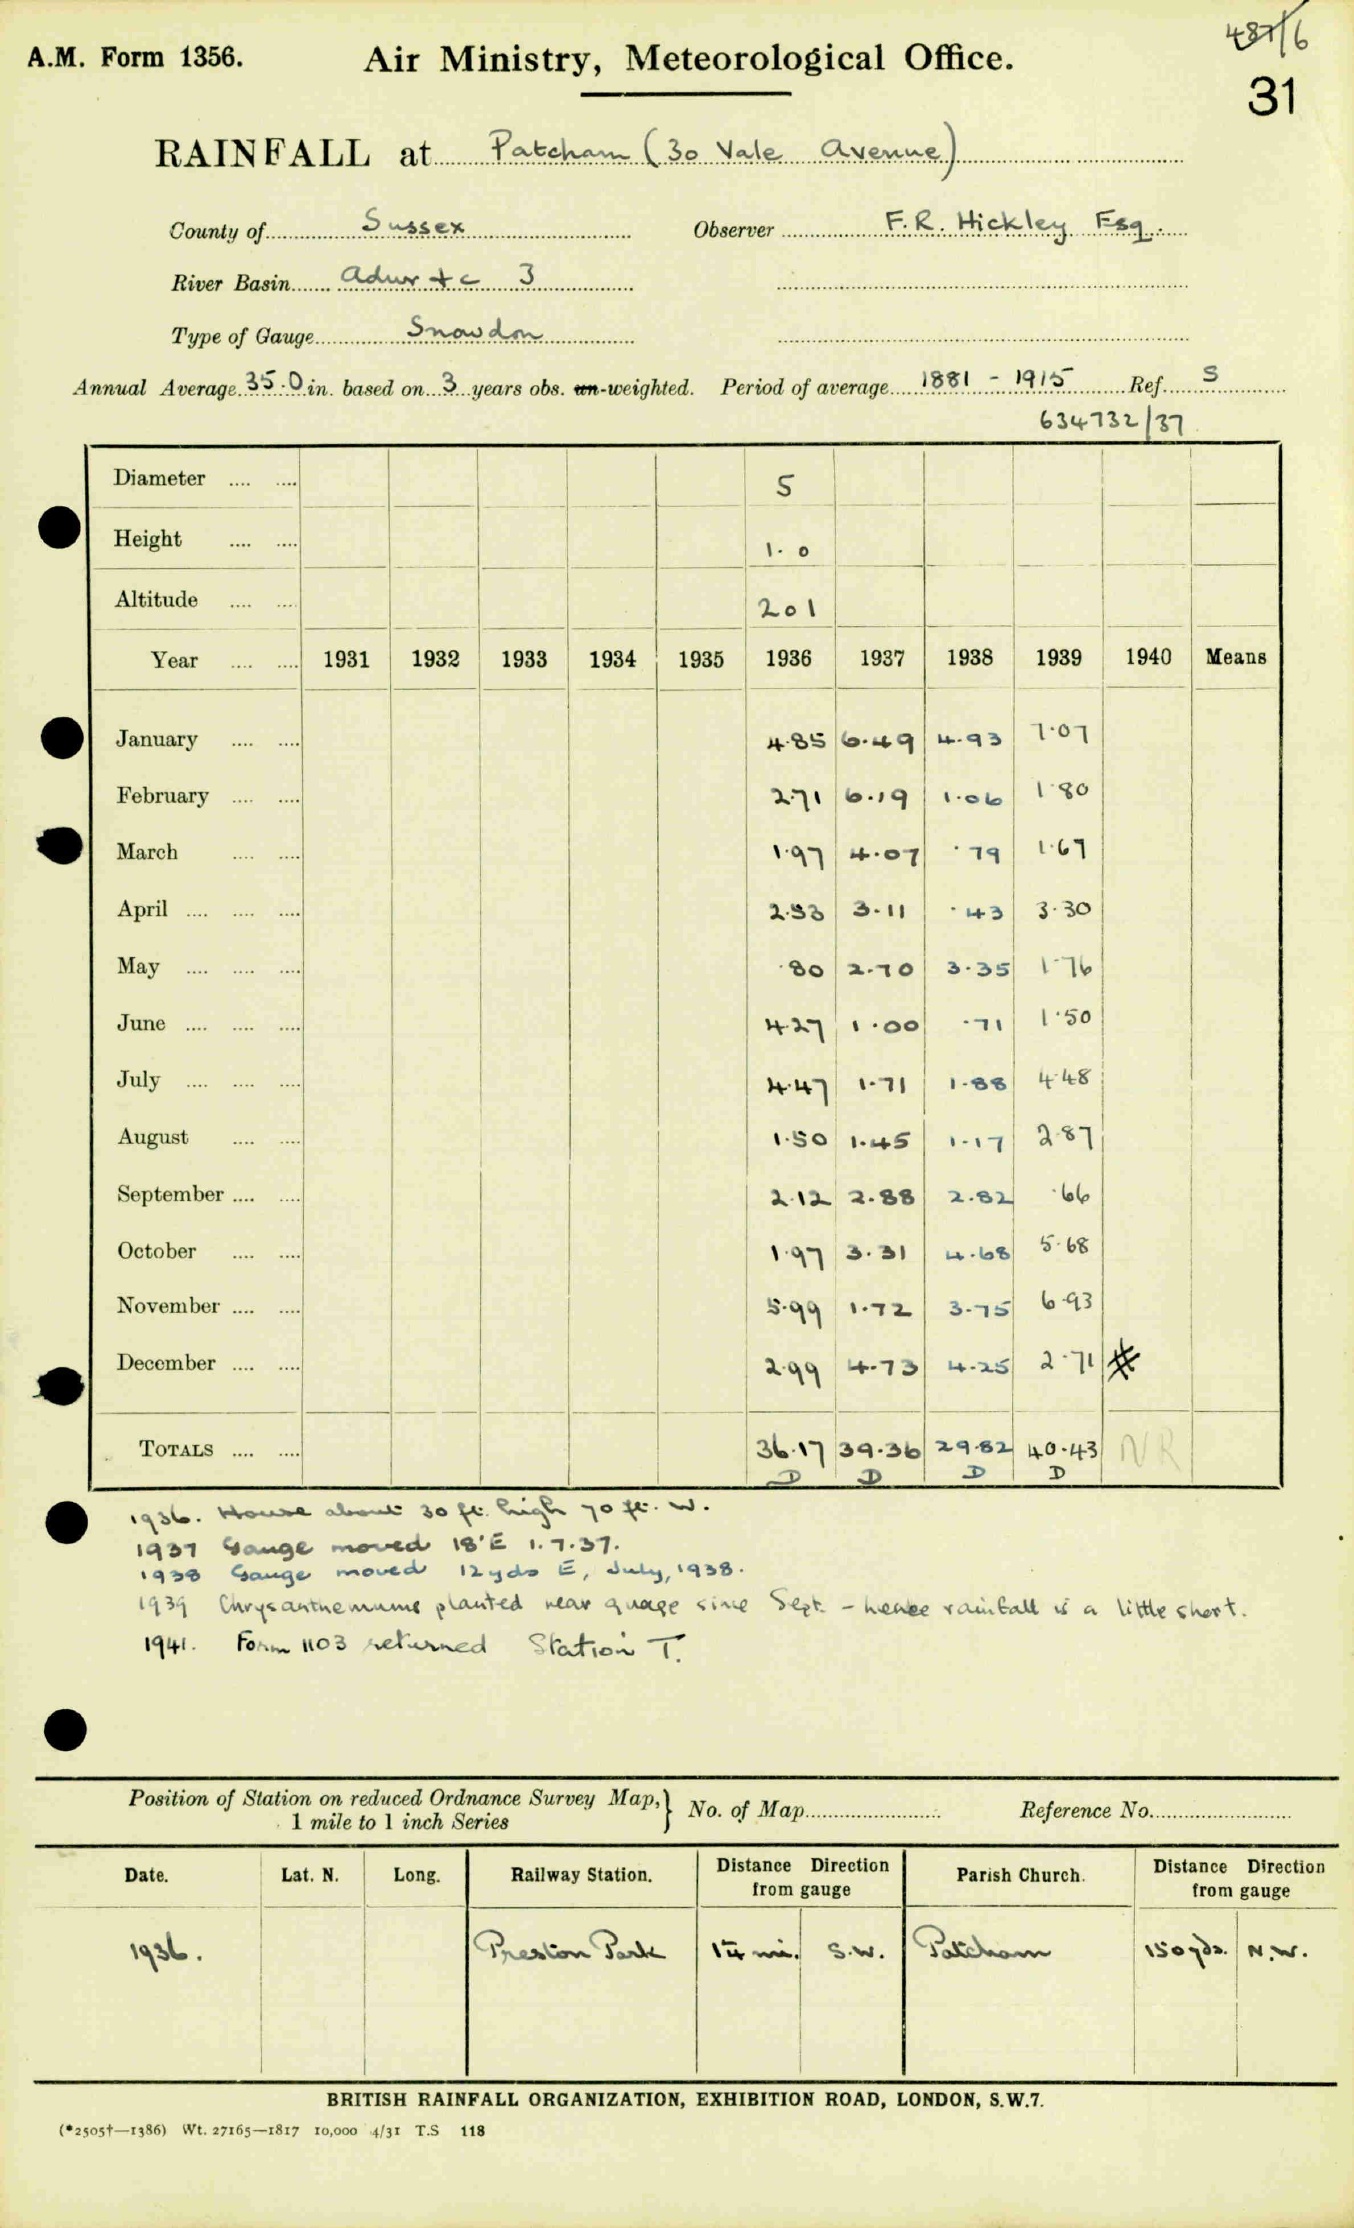 487/6
A.M. Form 1356. Air Ministry, Meteorological Office.
31
RAINFALL at Patcham (30 Vale Avenue)
County of Sussex Observer F.R. Hickley Esq.
River Basin Adur + c 3
Type of Gauge Snowdon
Annual Average 35.0 in. based on 3 years obs. un-weighted. Period of average 1881 - 1915 Ref. S
634732/37
Diameter .... .... 5
Height .... .... 1.0
Altitude .... .... 201
Year .... .... 1931 1932 1933 1934 1935 1936 1937 1938 1939 1940 Means
January .... .... 4.85 6.49 4.93 7.07
February .... .... 2.71 6.19 1.06 1.80
March .... .... 1.97 4.07 .79 1.67
April .... .... .... 2.53 3.11 .43 3.30
May .... .... .... .80 2.70 3.35 1.76
June .... .... .... 4.27 1.00 .71 1.50
July .... .... .... 4.47 1.71 1.88 4.48
August .... .... 1.50 1.45 1.17 2.87
September .... .... 2.12 2.88 2.82 .66
October .... .... 1.97 3.31 4.68 5.68
November .... .... 5.99 1.72 3.75 6.93
December .... .... 2.99 4.73 4.25 2.71 #
TOTALS .... .... 36.17 39.36 29.82 40.43 NR
D D D D
1936. House about 30 ft. high 70 ft. W.
1937 Gauge moved 18' E 1.7.37.
1938 Gauge moved 12 yds E, July, 1938.
1939 Chrysanthemums planted near guage since Sept. - hence rainfall is a little short.
1941. Form 1103 returned Station T.
Position of Station on reduced Ordnance Survey Map, } No. of Map Reference No.
1 mile to 1 inch Series
Date. Lat. N. Long. Railway Station. Distance Direction from gauge Parish Church. Distance Direction from gauge
1936. Preston Park 1¼ mi. S.W. Patcham 150 yds. N.W.
BRITISH RAINFALL ORGANIZATION, EXHIBITION ROAD, LONDON, S.W.7.
(*2505†—1386) Wt. 27165—1817 10,000 4/31 T.S 118